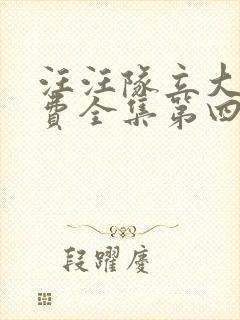 汪汪隊立大
費全集第四
段躍慶